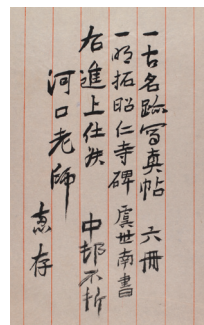 一古名跡写真帖 六冊
一明拓昭仁寺碑 虞世南書
右進上仕候 中村不折
河口老師
恵存